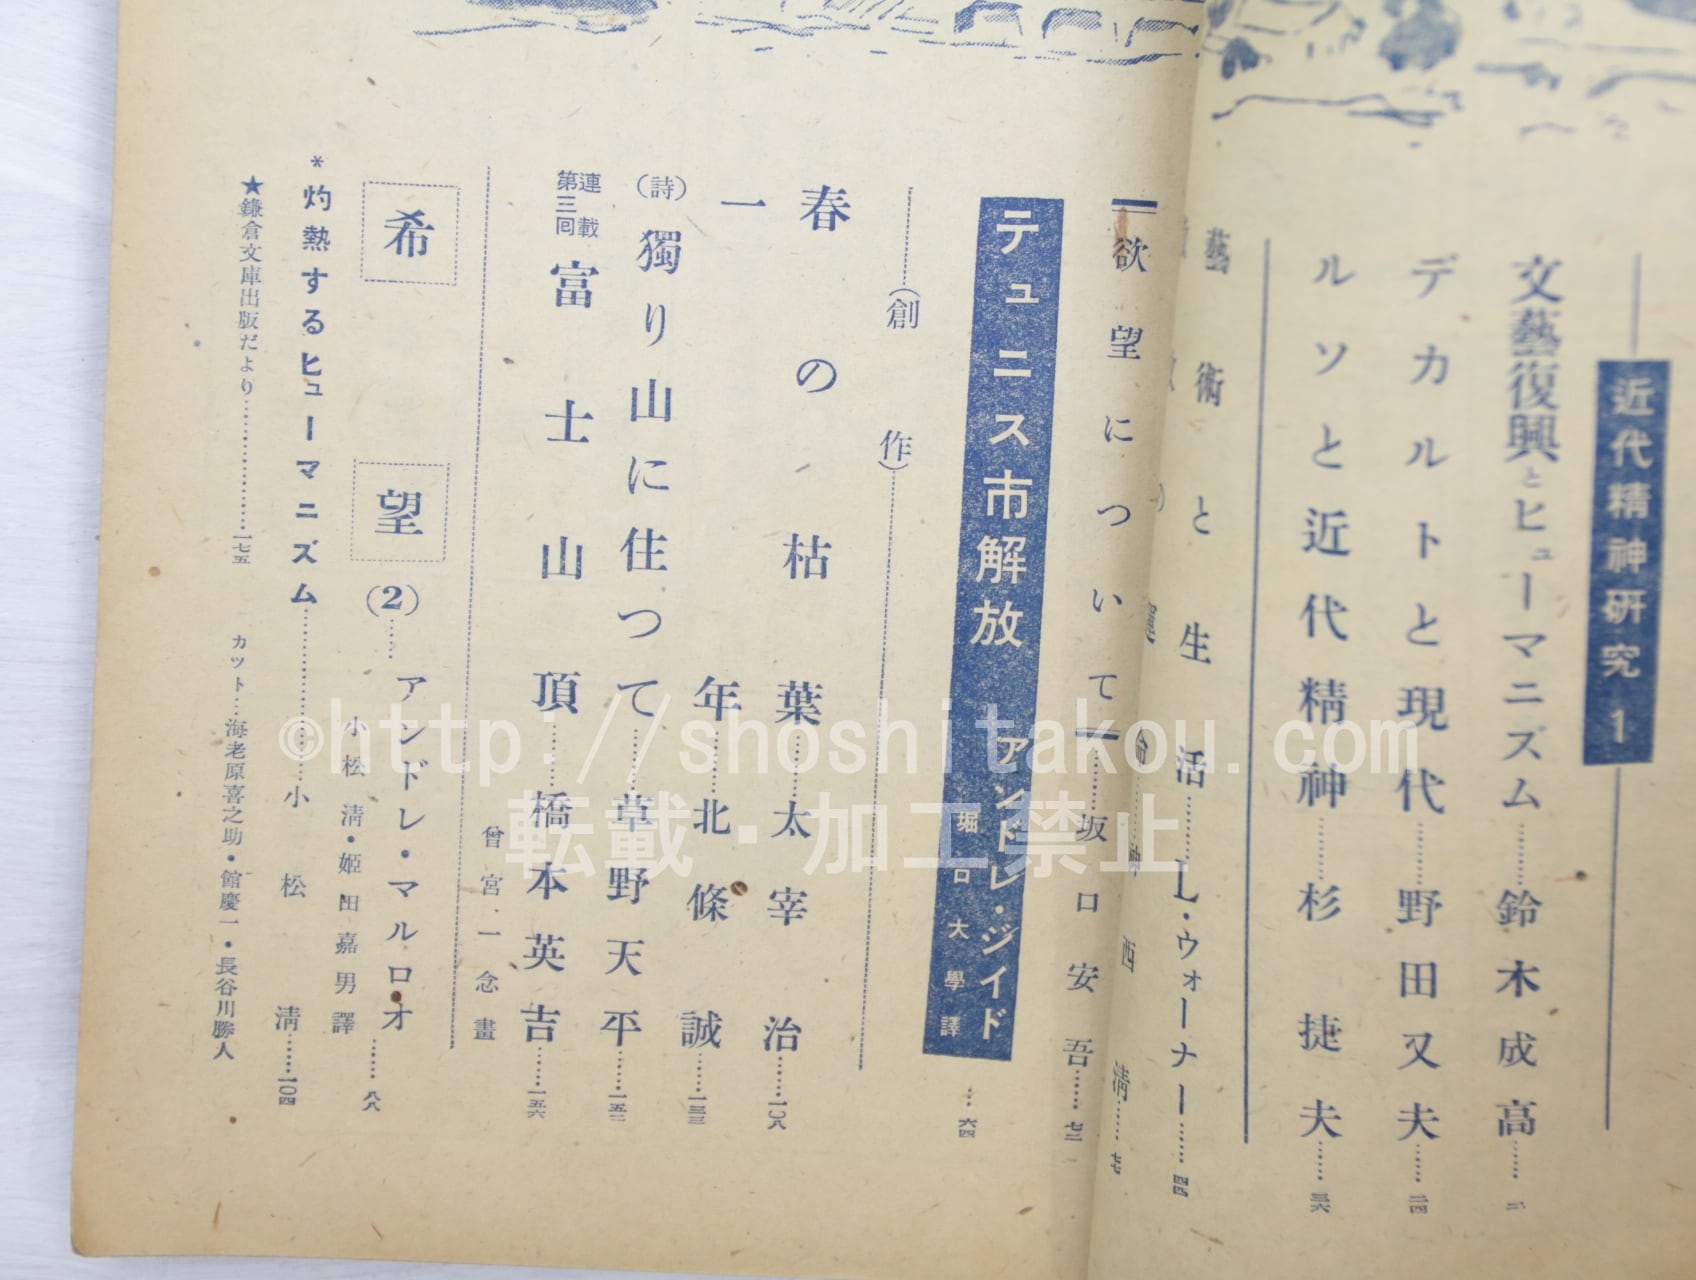 近代精神研究 1
文藝復興とヒューマニズム……鈴木成高……二
デカルトと現代……野田又夫……二四
ルソと近代精神……杉捷夫……三六
藝術と生活……L・ウォーナー……四四
西 清
欲望について……坂口安吾……七二
テュニス市解放 アンドレ・ジイド
堀口大學譯……六四
(創作)
春の枯葉……太宰治……一〇八
一年……北條誠……一三三
(詩)獨り山に住つて……草野天平……一五二
連載
第三回 富士山頂……橋本英吉……一五六
曾宮一念畫
希望(2)……アンドレ・マルロオ……八八
小松清・姫田嘉男譯
*灼熱するヒューマニズム……小松清……一〇四
★鎌倉文庫出版だより……一七五
カット…海老原喜之助・館慶一・長谷川勝人
©http://shoshitakou.com
転載・加工禁止